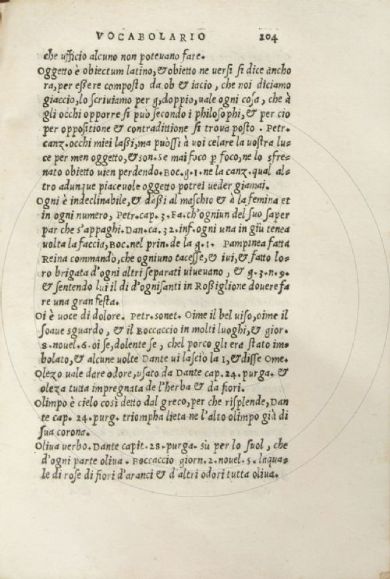 VOCABOLARIO 104
che ufficio alcuno non poteuano fare.
Oggetto è obiectum latino, & obietto ne uersi si dice ancho
ra, per eßere composto da ob & iacio, che noi diciamo
giaccio, lo scriuamo per g, doppio, uale ogni cosa, che à
gli occhi opporre si può secondo i philosophi, & per cio
per oppositione & contradittione si troua posto. Petr.
canz. occhi miei laßi, ma poßsi à uoi celare la uostra lu⸗
ce per men oggetto, & son. Se mai foco p foco, ne lo sfre⸗
nato obietto uien perdendo. Boc. g. 1. ne la canz. qual al⸗
tro adunque piaceuole oggetto potrei ueder giamai.
Ogni è indeclinabile, & daßi al maschio & à la femina et
in ogni numero, Petr. cap. 3. Fa. th'ogniun del suo saper
par che s'appaghi. Dan. ca. 32. inf. ogni una in giu tenea
uolta la faccia, Boc. nel prin. de la g. 1. Pampinea fatta
Reina commando, che ogniuno tacesse, & iui, & fatto lo⸗
ro brigata d'ogni altri separati uiueuano, & g. 3. n. 9.
& sentendo lui il di d'ognisanti in Roßiglione douere fa
re una gran festa.
Oi è uoce di dolore. Petr. sonet. Oime il bel uiso, oime il
soaue sguardo, & il Boccaccio in molti luoghi, & gior.
8. nouel. 6. oi se, dolente se, chel porco gli era stato im⸗
bolato, & alcune uolte Dante ui lascio la I, & disse Ome.
Olezo uale dare odore, usato da Dante cap. 24. purga. &
oleza tutta impregnata de l'herba & da fiori.
Olimpo è cielo così detto dal greco, per che risplende, Dan
te cap. 24. purg. triompha lieta ne l'alto olimpo già di
sua corona.
Oliua uerbo. Dante capit. 28. purga. sù per lo suol, che
d'ogni parte oliua. Boccaccio giorn. 2. nouel. 5. laqua⸗
le di rose di fiori d'aranci & d'altri odori tutta oliua.